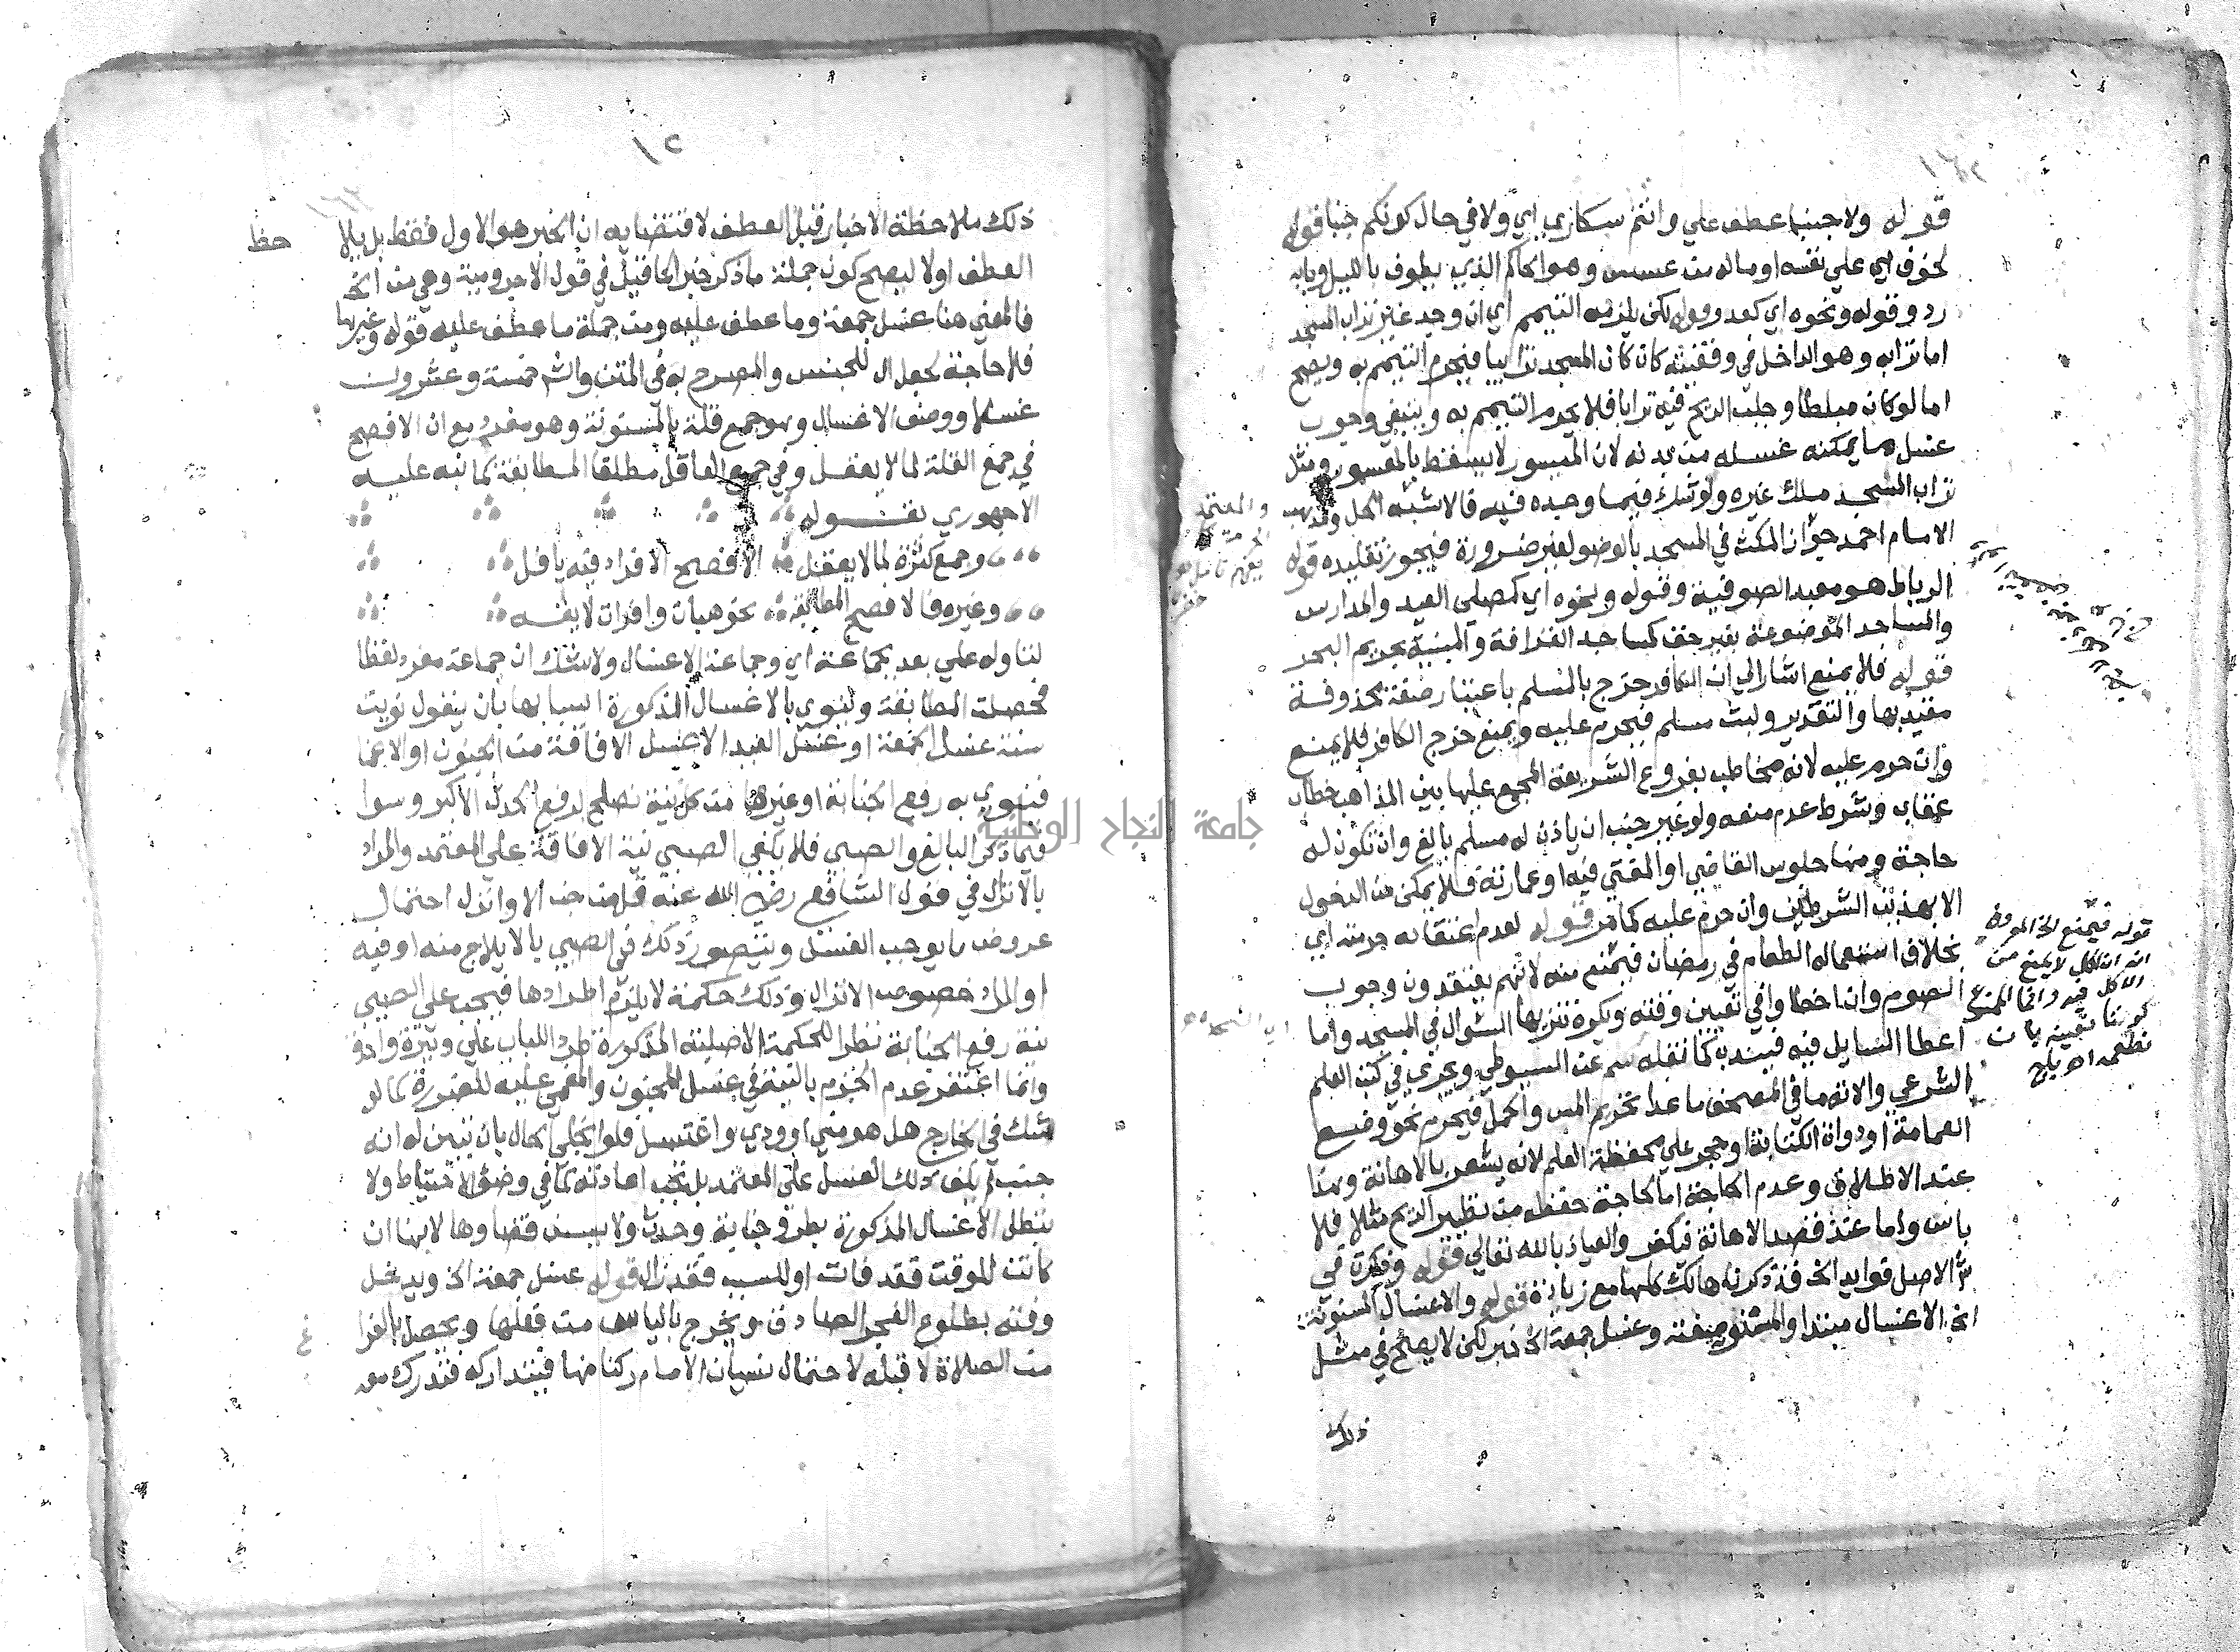 قوله ولا جنبا عطف علي وانتم سكاري اي ولا في حال كونكم جنبا قوله
لخوف اي علي نفسه او ماله من عسس وهو الحاكم الذي يطوف بالليل وبابه
رد وقوله ونحوه اي كعدو وقوله لكن يلزمه التيمم اي ان وجد غير تراب المسجد
اما ترابه وهو الداخل في وقفيته كان كان المسجد ترابيا فيحرم التيمم به ويصح
اما لو كان مبلطا وجلب الريح فيه ترابا فلا يحرم التيمم به وينبغي وجوب
غسل ما يمكنه غسله من بدنه لان الميسور لا يسقط بالمعسور ومثل
تراب المسجد ملك غيره ولو شك فيما وجده فيه فالاشبه الحل ومذهب
الامام احمد جواز المكث في المسجد بالوضو لغير ضرورة فيجوز تقليده قوله
الرباط هو معبد الصوفية وقوله ونحوه اي كمصلي العيد والمدارس
والمساجد الموضوعة بغير حق كمساجد القرافة والمبنية بحريم البحر
قوله فلا يمنع اشار الي ان الكافر خرج بالمسلم باعتبار صفة محذوفة
مقيد بها والتقدير ولبث مسلم فيحرم عليه ويمنع خرج الكافر فلا يمنع
وان حرم عليه لانه مخاطب بفروع الشريعة المجمع عليها بين المذاهب خطاب
عقاب وشرط عدم منعه ولو غير جنب ان ياذن له مسلم بالغ وان تكون له
حاجة ومنها جلوس القاضي او المفتي فيه او عمارته فلا يمكن من الدخول
الا بهذين الشرطين وان حرم عليه كما مر قوله لعدم اعتقاده حرمته اي
بخلاف استعماله الطعام في رمضان فيمنع منه لانهم يعتقدون وجوب
الصوم وان اخطاوا في تعيين وقته ويكره تنزيها السوال في المسجد واما
اعطا السايل فيه فيندب كما نقله سم عن السيوطي ويجري في كتب العلم
الشرعي والاته ما في المصحف ما عدا تحريم المس والحمل فيحرم نحو وضع
العمامة او دواة الكتابة او حجر علي محفظة العلم لانه يشعر بالاهانة وهذا
عند الاطلاق وعدم الحاجة اما لحاجة حفظه من تطيير الريح مثلا فلا
باس واما عند قصد الاهانة فيكفر والعياذ بالله تعالي قوله وذكرت في
ش الاصل فوايد الخ قد ذكرتها هنالك كلها مع زيادة قوله والاغسال المسنونة
الخ الاغسال مبتدا والمسنونة صفة وغسل جمعة الخ خبر لكن لا يصلح في مثل
ذلك
قوله فيمنع الخ المعروف
انه ان اكل لا يمنع من
الاكل فيه وانما الممنوع
كوننا نعينه بان
نطعمه اه
١٢
ذلك ملاحظة الاخبار قبل العطف لاقتضايه ان الخبر هو الاول فقط بل يلا
حظ
العطف اولا ليصح كون جملة ما ذكر خبرا كما قيل في قول الاجرومية وهي من الخ
فالمعني هنا غسل جمعة وما عطف عليه ومن جملة ما عطف عليه قوله وغيرها
فلا حاجة لجعل ال للجنس والمصرح به في المتن والش خمسة وعشرون
غسلا ووصف الاغسال وهو جمع قلة بالمسنونة وهو مفرد مع ان الافصح
في جمع القلة لما لا يعقل وفي جمع العاقل مطلقا المطابقة كما نبه عليه
الاجهوري بقوله
وجمع كثرة لما لا يعقل الافصح الافراد فيه يا فل
وغيره فالافصح المطابقة نحو هبات وافرات لايقه
لتاوله علي بعد بجماعة اي وجماعة الاغسال ولا شك ان جماعة مفرد لفظا
فحصلت المطابقة وينوي بالاغسال المذكورة اسبابها بان يقول نويت
سنة غسل الجمعة او غسل العيد الا غسل الافاقة من الجنون او الاغما
فينوي به رفع الجنابة او غيرها من كل نية تصلح لرفع الحدث الاكبر وسوا
فيما ذكر البالغ والصبي فلا يكفي الصبي نية الافاقة علي المعتمد والمراد
بالانزال في قول الشافعي رضي الله عنه قل من جن الا وانزل احتمال
عروض ما يوجب الغسل ويتصور ذلك في الصبي بالايلاج منه او فيه
او المراد خصوص الانزال وذلك حكمة لا يلزم اطرادها فيجب علي الصبي
نية رفع الجنابة نظرا للحكمة الاصلية المذكورة طردا للباب علي وتيرة واحدة
وانما اغتفر عدم الجزم بالنية في غسل المجنون والمغمي عليه للضرورة كما لو
شك في الخارج هل هو مني او ودي واغتسل فلو انجلي الحال بان تبين له انه
جنب لم يكف ذلك الغسل علي المعتمد بل تجب اعادته كما في وضو الاحتياط ولا
تبطل الاغسال المذكورة بطرو جنابة وحدث ولا يسن قضاوها لانها ان
كانت للوقت فقد فات او للسبب فقد زال قوله غسل جمعة الخ ويدخل
وقته بطلوع الفجر الصادق ويخرج بالياس من فعلها ويحصل بالفراغ
من الصلاة لا قبله لاحتمال نسيان الامام ركنا منها فيتداركه فتدرك معه
جامعة النجاح الوطنية